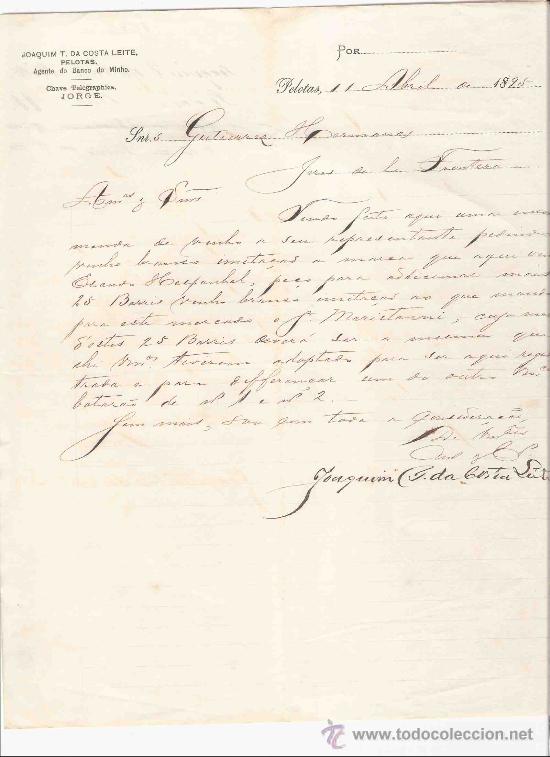 JOAQUIM T. DA COSTA LEITE,
PELOTAS,
Agente do Banco do Minho.
Chave Telegraphica,
JORGE.
POR
Pelotas, 11 Abril de 1895
Snrs Gutierrez Hermanos
Jeres de la Frontera
Amos y Snrs
Tendo feito aqui uma encom
menda de vinho a seu representante pedindo
vinho branco imitação a marca que aqui
Escudo Hespanhol, peço para addicionar mais
25 Barris vinho branco imitação ao que
para este mercado o Sr. Marietanni, cuja
d'estes 25 Barris deverá ser a mesma que
ahi Vmces tiverem adoptado para ser aqui regis
trada e para differençar um do outro Vmces
botarão de nº 1 e nº 2.
Sem mais, sou com toda a consideração
De Vmces
Joaquim T. da Costa Leite
www.todocoleccion.net